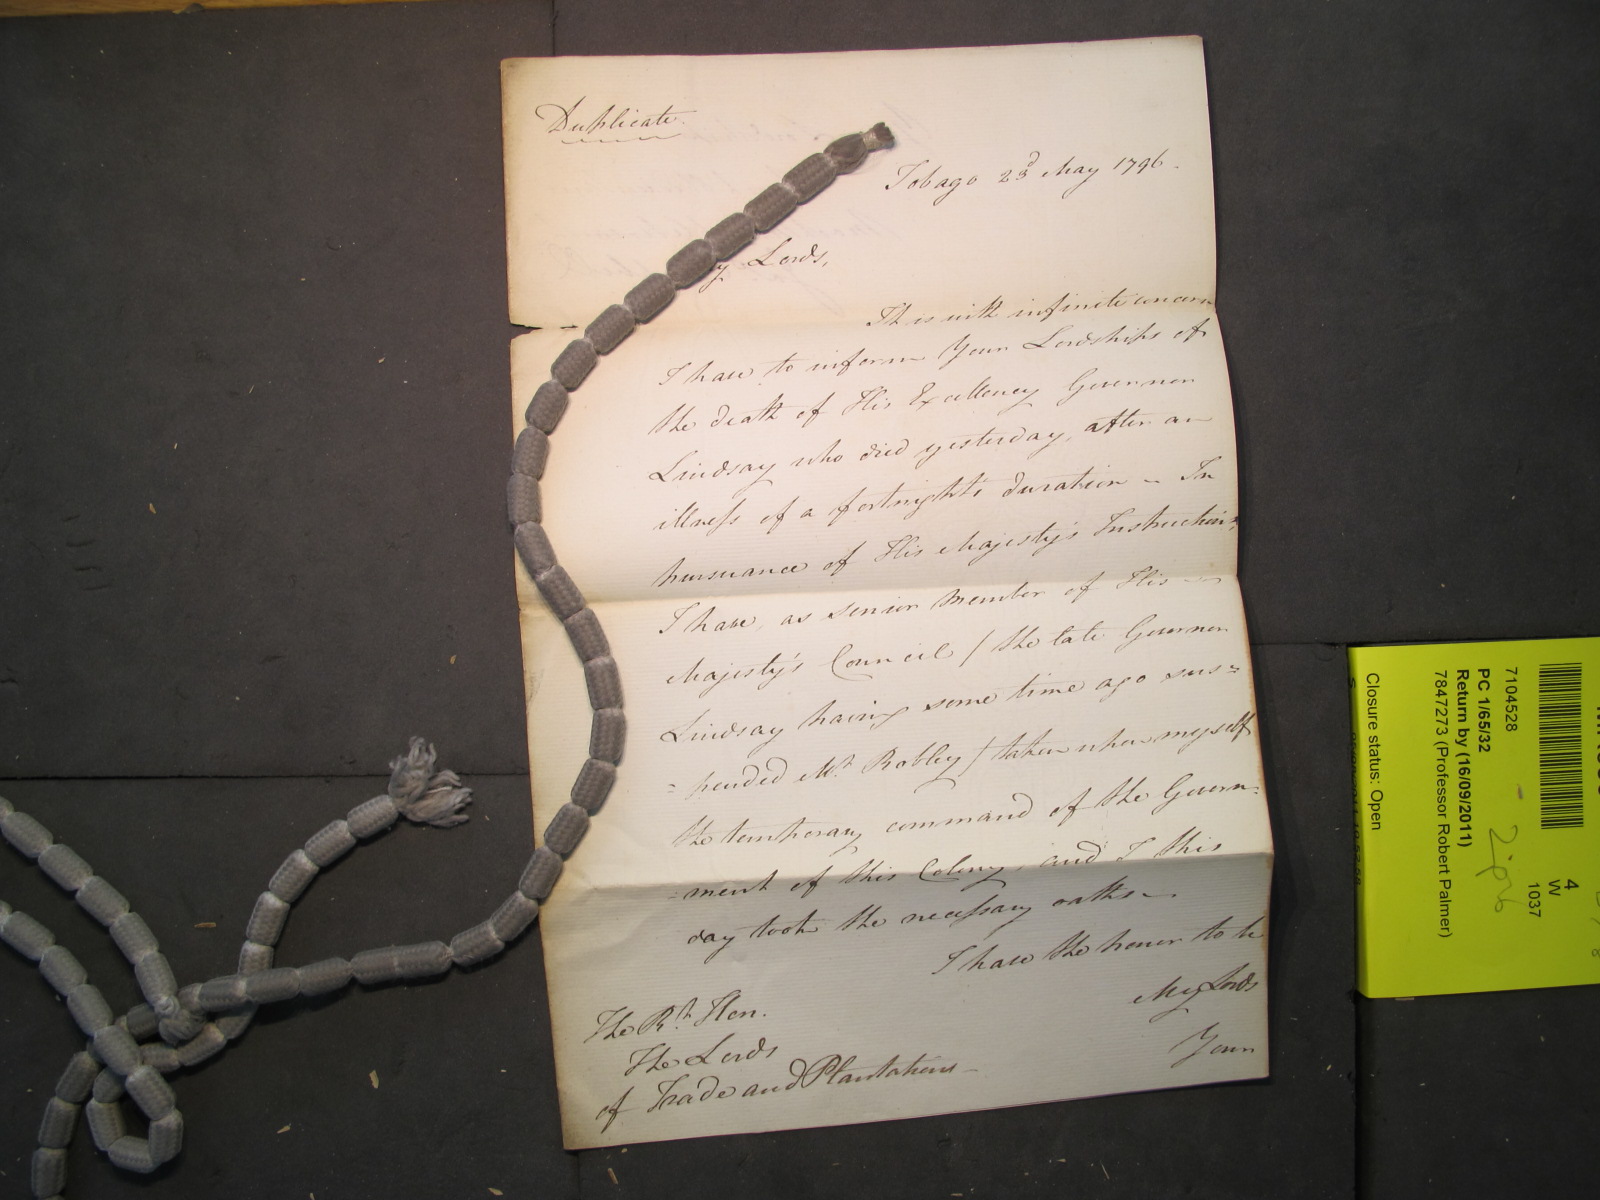 Duplicate.
Tobago 23d May 1796.
y Lords,
It is with infinite concern
I have to inform Your Lordships of
the death of His Excellency Governor
Lindsay who died yesterday, after an
illness of a fortnight's duration – In
pursuance of His Majesty's Instructions,
I have, as senior Member of His
Majesty's Council / the late Governor
Lindsay having some time ago sus=
=pended Mr. Robley / taken upon myself
the temporary command of the Govern=
=ment of this Colony, and I this
day took the necessary oaths –
I have the honor to be
My Lords
Your
The Rt. Hon.
The Lords
of Trade and Plantations –
7104528
PC 1/65/32
Return by (16/09/2011)
7847273 (Professor Robert Palmer)
Closure status: Open
4
W
1037